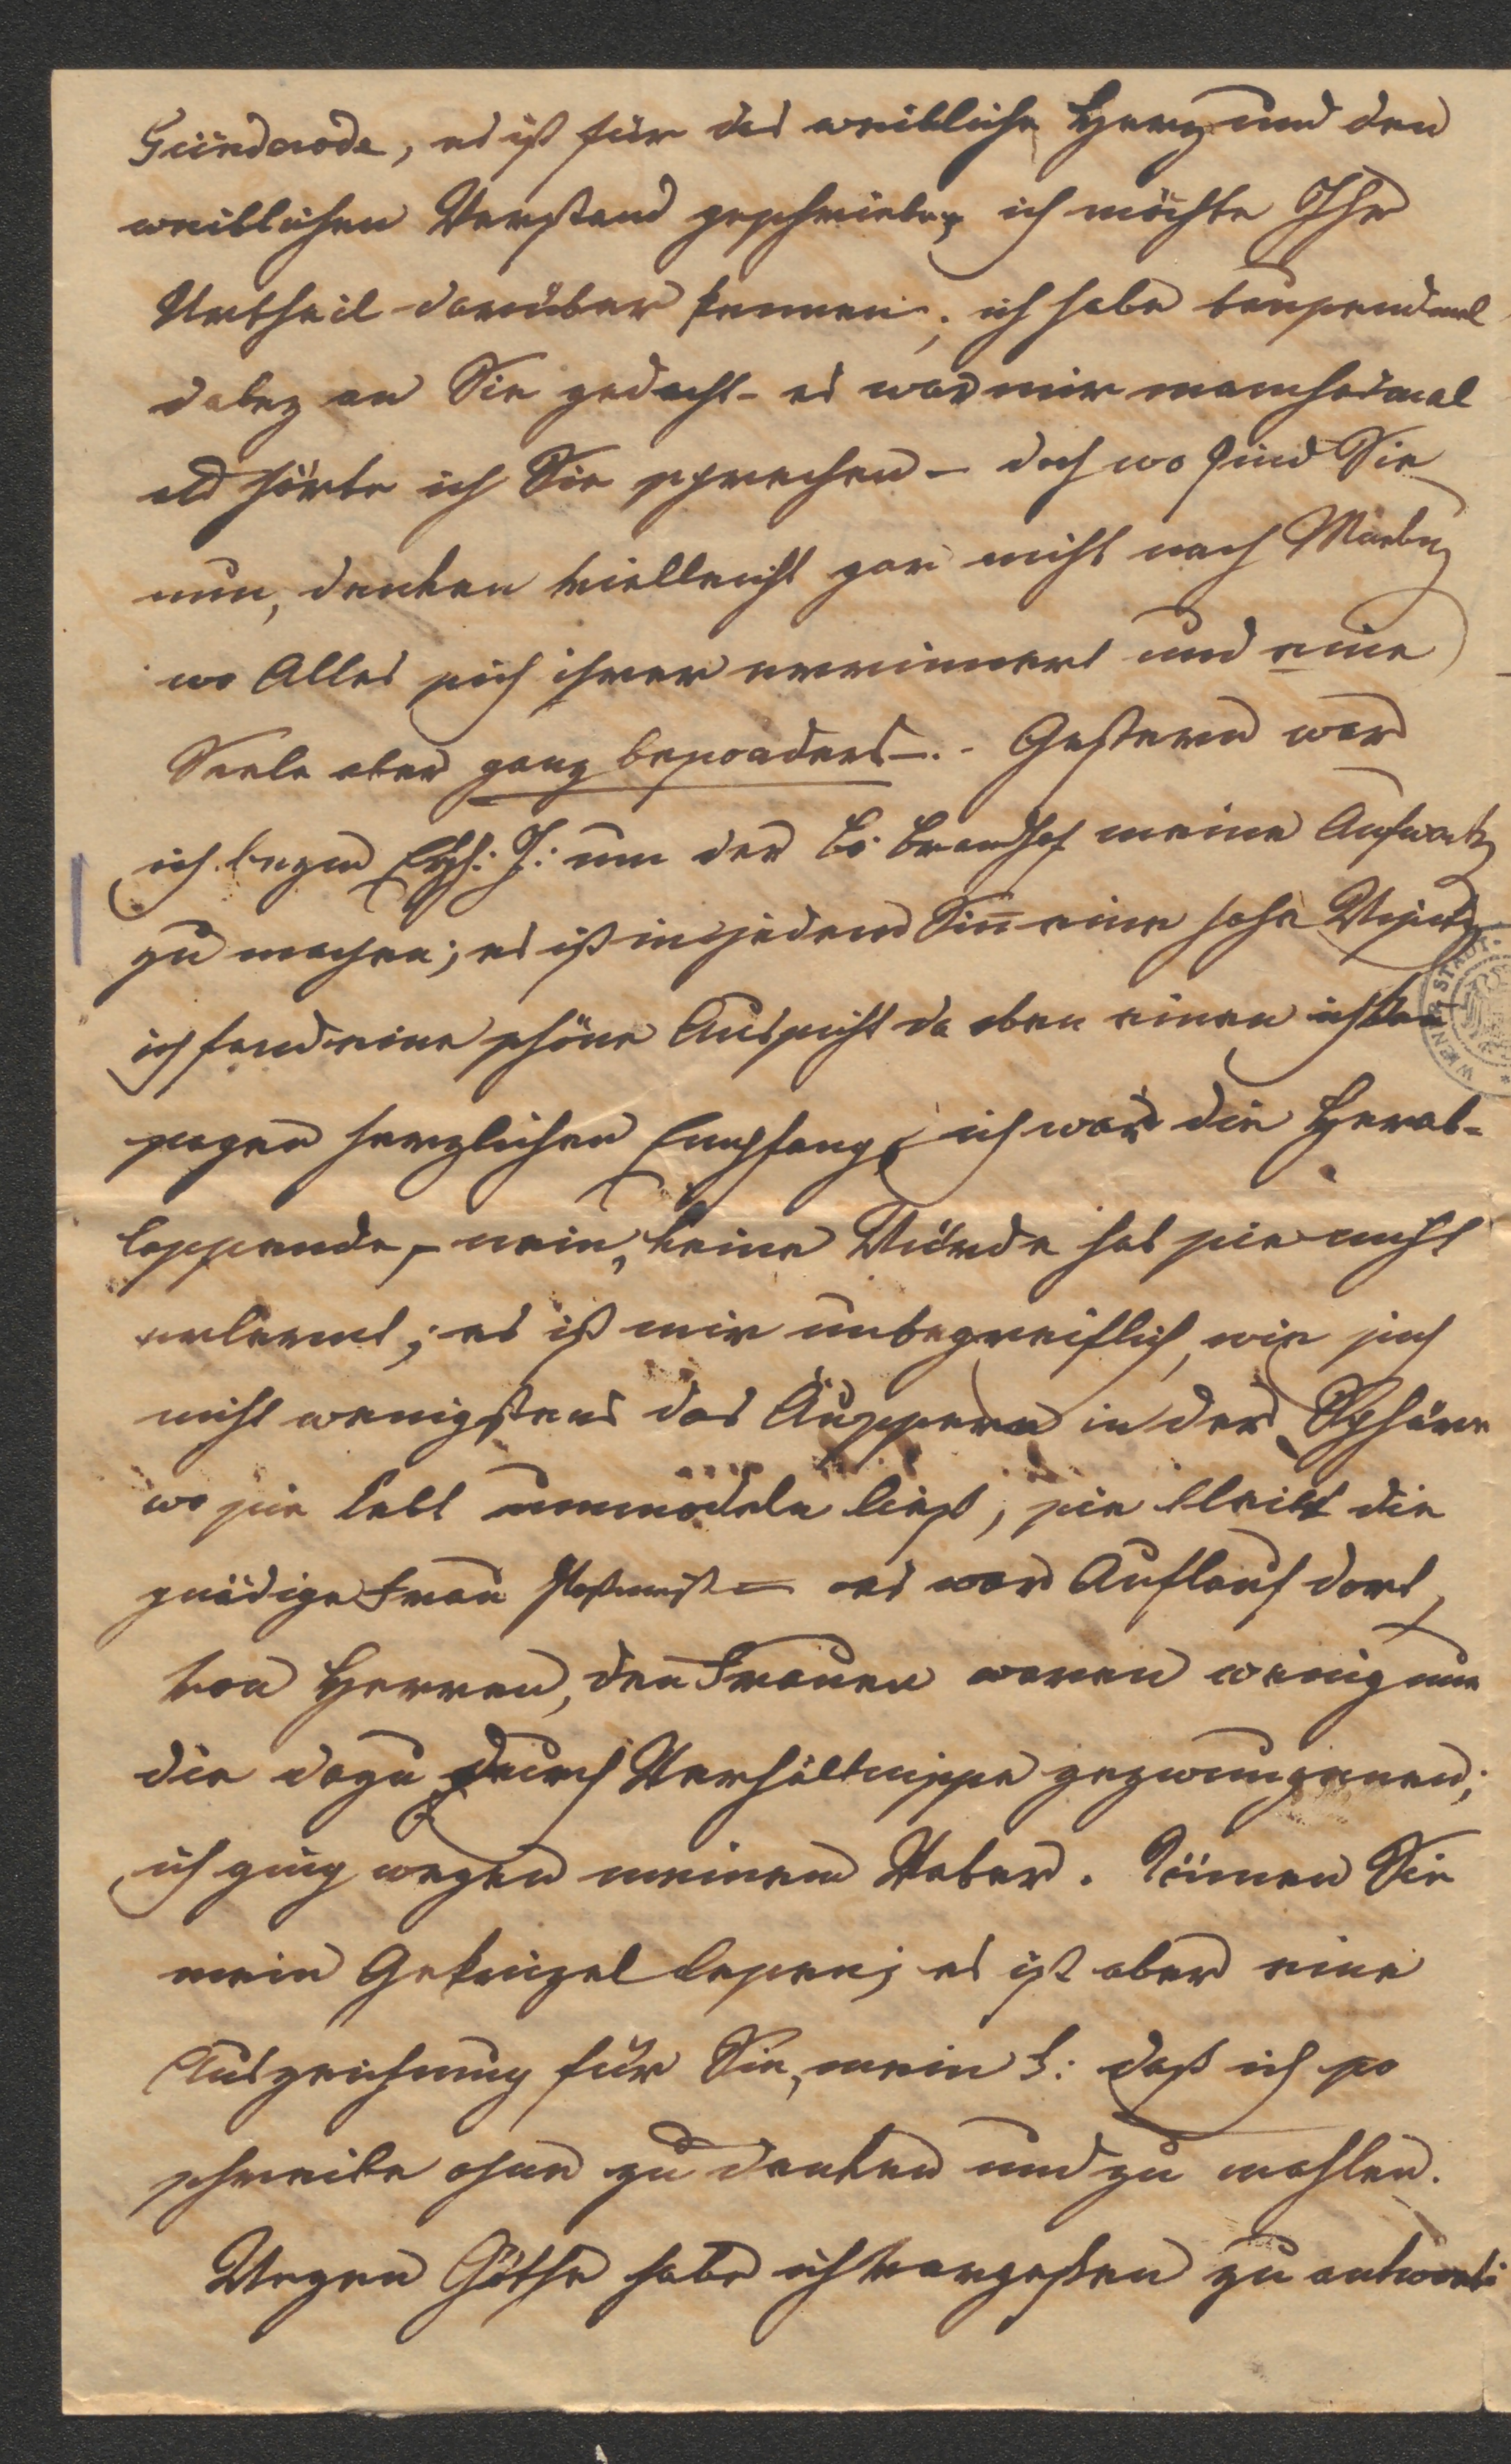 Günderode, es ist für das weibliche Herz und den
weiblichen Verstand geschrieben, ich möchte Ihr
Urtheil darüber kennen; ich habe tausendmal
dabey an Sie gedacht - es war mir manchesmal
als hörte ich Sie sprechen – doch wo sind Sie
nun, denken vielleicht gar nicht nach
wo Alles sich ihrer errinnert und eine
Seele aber ganz besonders –. - Gestern war
ich beym Erzh: J: um der Brandhof meine Aufwartg
zu machen; es ist in jedem Sin̅ eine hohe Visite
ich fand eine schöne Aussicht da oben einen
sagen herzlichen Empfang, ich war die Herab-
lassende, – nein, keine Würde hat sie nicht
erlernt; es ist mir unbegreiflich, wie sich
nicht wenigstens das Äussere in der Sphäre
wo sie lebt ummodeln liess, sie bleibt die
gnädige Frau Postmeist= es war Auflauf dort,
von Herren, den Frauen waren wenig nur
die dazu durch Verhältnisse gezwungenen;
ich ging wegen meinem Vater. Können Sie
mein Gekrizel lesen; es ist aber eine
Auszeichnung für Sie, mein L: daß ich so
schreibe ohne zu denken und zu mahlen.
Wegen Göthe habe ich vergessen zu antwort:
WIENER STADT-